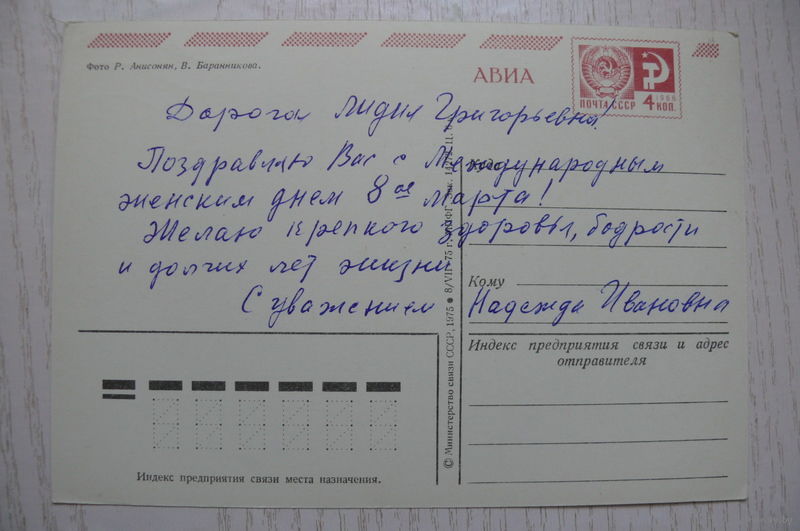 Фото Р. Анисонян, В. Баранникова.
АВИА
ПОЧТА СССР 4 КОП. 1966
Дорогая Лидия Григорьевна!
Поздравляю Вас с Международным
женским днем 8ое марта!
Желаю крепкого здоровья, бодрости
и долгих лет жизни
С уважением Надежда Ивановна
Куда
Кому
Индекс предприятия связи и адрес
отправителя
Индекс предприятия связи места назначения.
© Министерство связи СССР, 1975 ● 8/VII-75 г.